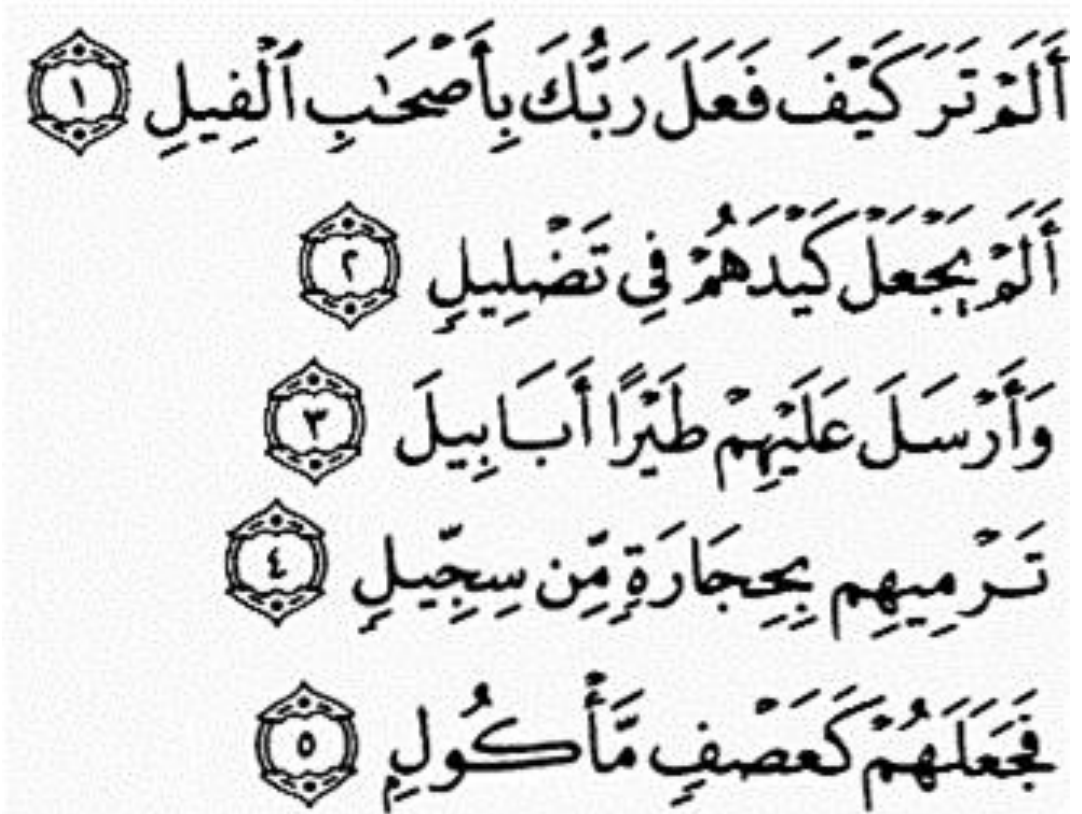 أَلَمْ تَرَ كَيْفَ فَعَلَ رَبُّكَ بِأَصْحَٰبِ ٱلْفِيلِ ١
أَلَمْ يَجْعَلْ كَيْدَهُمْ فِي تَضْلِيلٍ ٢
وَأَرْسَلَ عَلَيْهِمْ طَيْرًا أَبَابِيلَ ٣
تَرْمِيهِم بِحِجَارَةٍ مِّن سِجِّيلٍ ٤
فَجَعَلَهُمْ كَعَصْفٍ مَّأْكُولٍ ٥